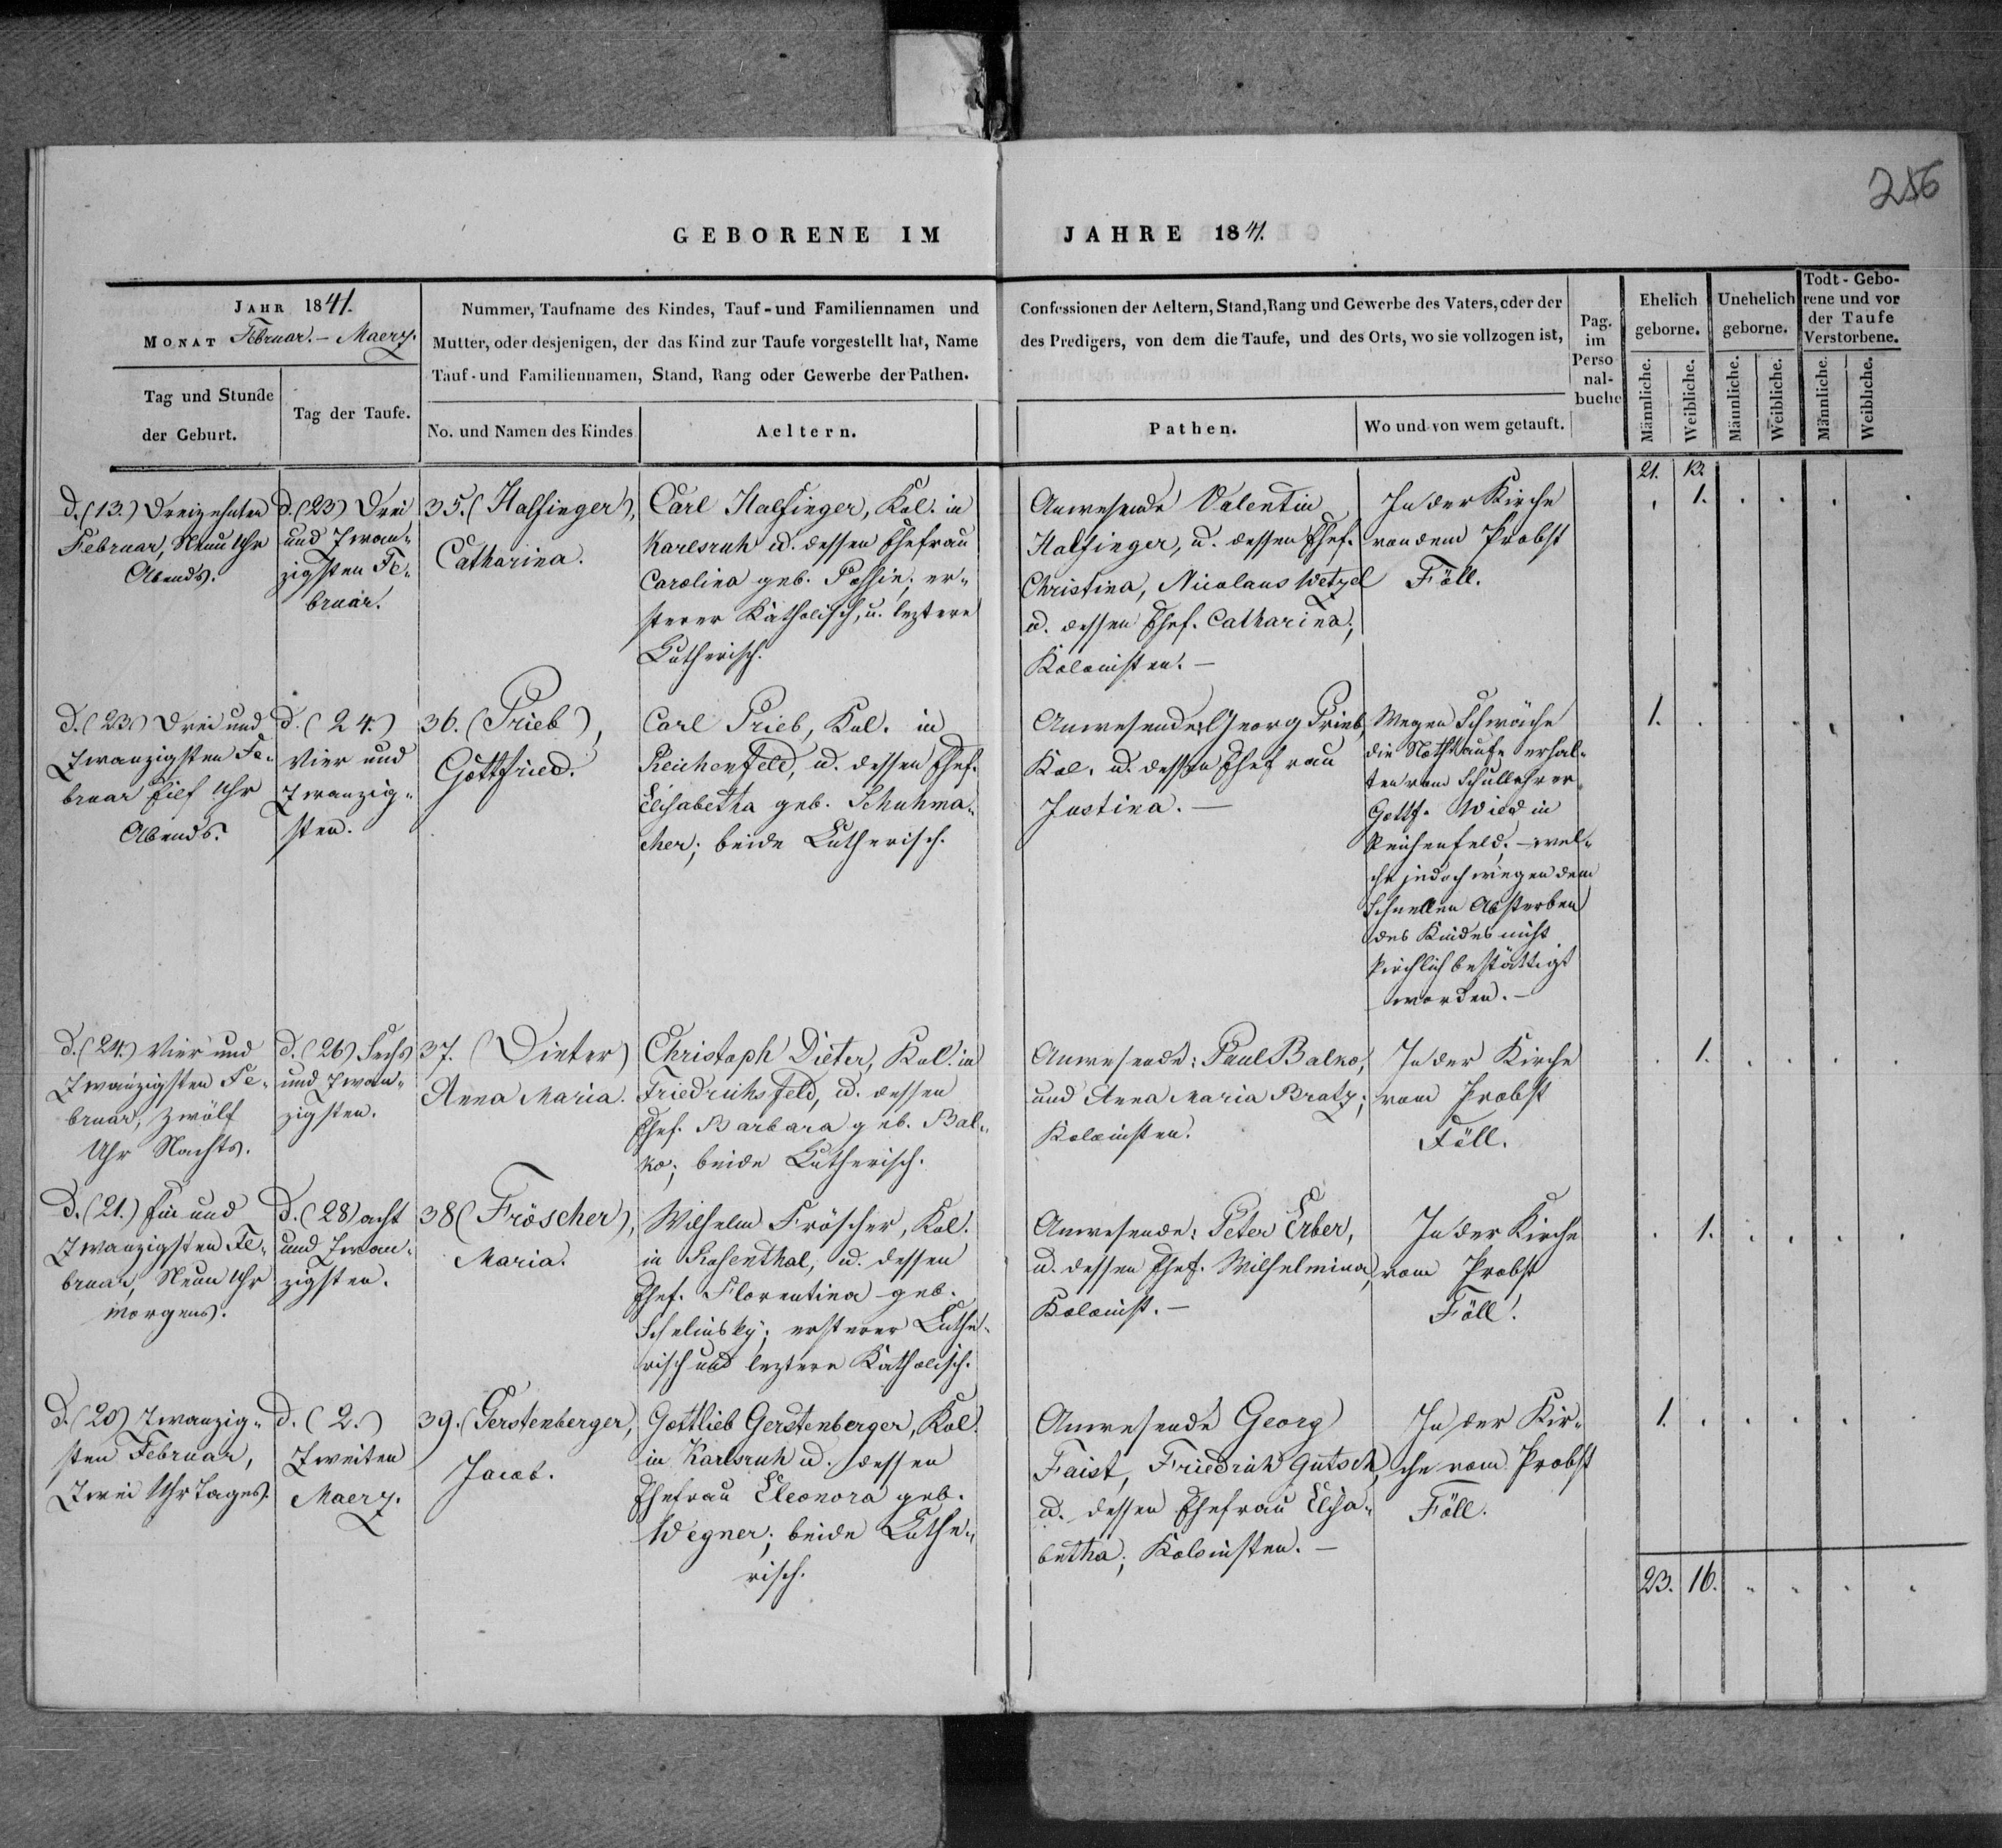 256
GEBORENE IM JAHRE 1841.
JAHR 1841.
MONAT Februar. – Maerz.
Tag und Stunde
der Geburt.
Tag der Taufe.
Nummer, Taufname des Kindes, Tauf- und Familiennamen und
Mutter, oder desjenigen, der das Kind zur Taufe vorgestellt hat, Name
Tauf- und Familiennamen, Stand, Rang oder Gewerbe der Pathen.
No. und Namen des Kindes
Aeltern.
Confessionen der Aeltern, Stand, Rang und Gewerbe des Vaters, oder der
des Predigers, von dem die Taufe, und des Orts, wo sie vollzogen ist,
Pathen.
Wo und von wem getauft.
Pag.
im
Perso-
nal-
buche
Ehelich
geborne.
Unehelich
geborne.
Todt-Gebo-
rene und vor
der Taufe
Verstorbene.
Männliche.
Weibliche.
Männliche.
Weibliche.
Männliche.
Weibliche.
21. 12.
d. (13.) Dreizehnten
Februar, Neun Uhr
Abends.
d. (23) Drei
und Zwan-
zigsten Fe-
bruar.
35. (Halfinger),
Catharina.
Carl Halfinger, Kol. in
Karlsruh u. dessen Ehefrau
Carolina geb. Poschin; er-
sterer Katholisch, u. leztere
Lutherisch.
Anwesende Valentin
Halfinger, u. dessen Ehef.
Christina, Nicolaus Wetzel
u. dessen Ehef. Catharina;
Kolonisten. –
In der Kirche
von dem Probst
Föll.
1.
d. (23.) Drei und
Zwanzigsten Fe-
bruar Eilf Uhr
Abends.
d. (24.)
Vier und
Zwanzig-
sten.
36. (Prieb),
Gottfried.
Carl Prieb, Kol. in
Reichenfeld, u. dessen Ehef.
Elisabetha geb. Schuhma-
cher; beide Lutherisch.
Anwesende: Georg Prieb,
Kol. u. dessen Ehefrau
Justina. –
Wegen Schwäche
die Nothtaufe erhal-
ten vom Schullehrer
Gottf. Wied in
Reichenfeld, – wel-
che jedoch wegen dem
Schnellen Absterben
des Kindes nicht
kirchlich bestättigt
worden. –
1.
d. (24.) Vier und
Zwanzigsten Fe-
bruar, Zwölf
Uhr Nachts.
d. (26) Sechs
und Zwan-
zigsten.
37. (Dieter)
Anna Maria.
Christoph Dieter, Kol. in
Friedrichsfeld, u. dessen
Ehef. Barbara geb. Bal-
ko; beide Lutherisch.
Anwesende: Paul Balko,
und Anna Maria Bratz;
Kolonisten.
In der Kirche
vom Probst
Föll.
1.
D. (21.) Ein und
Zwanzigsten Fe-
bruar, Neun Uhr
Morgens.
D. (28) acht
und Zwan-
zigsten.
38 (Fröscher),
Maria.
Wilhelm Fröscher, Kol.
in Rosenthal, u. dessen
Ehef. Florentina geb.
Schelinsky; ersterer Luthe-
risch und leztere Katholisch.
Anwesende: Peter Erber,
u. dessen Ehef. Wilhelmina,
Kolonist. –
In der Kirche
vom Probst
Föll.
1.
d. (20) Zwanzig-
sten Februar,
Zwei Uhr Tages.
d. (2.)
Zweiten
Maerz.
39. (Gerstenberger,
Jacob.
Gottlieb Gerstenberger, Kol.
in Karlsruh u. dessen
Ehefrau Eleonora geb.
Wegner; beide Luthe-
risch.
Anwesende Georg
Faist, Friedrich Gutsch,
u. dessen Ehefrau Elisa-
betha; Kolonisten. –
In der Kir-
che vom Probst
Föll.
1.
23. 16.